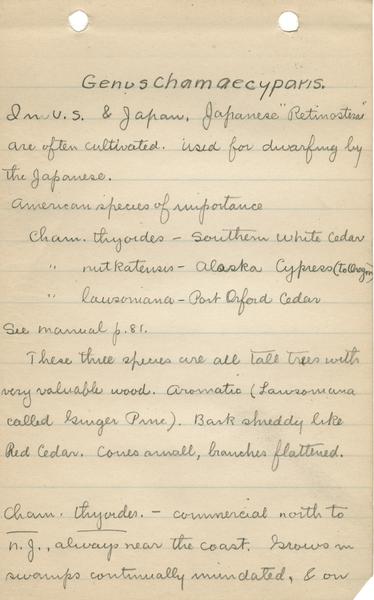 Genus Chamaecyparis.
In U.S. & Japan. Japanese "Retinosteras"
are often cultivated. Used for dwarfing by
the Japanese.
American species of importance
Cham. thyoides - Southern White Cedar
" nutkatensis - Alaska Cypress (To Oregon)
" lawsoniana - Port Orford Cedar
See manual p. 81.
These three species are all tall trees with
very valuable wood. Aromatic (Lawsoniana
called Ginger Pine). Bark shreddy like
Red Cedar. Cones small, branches flattened.
Cham. thyoides. - commercial north to
N.J., always near the coast. Grows in
swamps continually inundated, & on